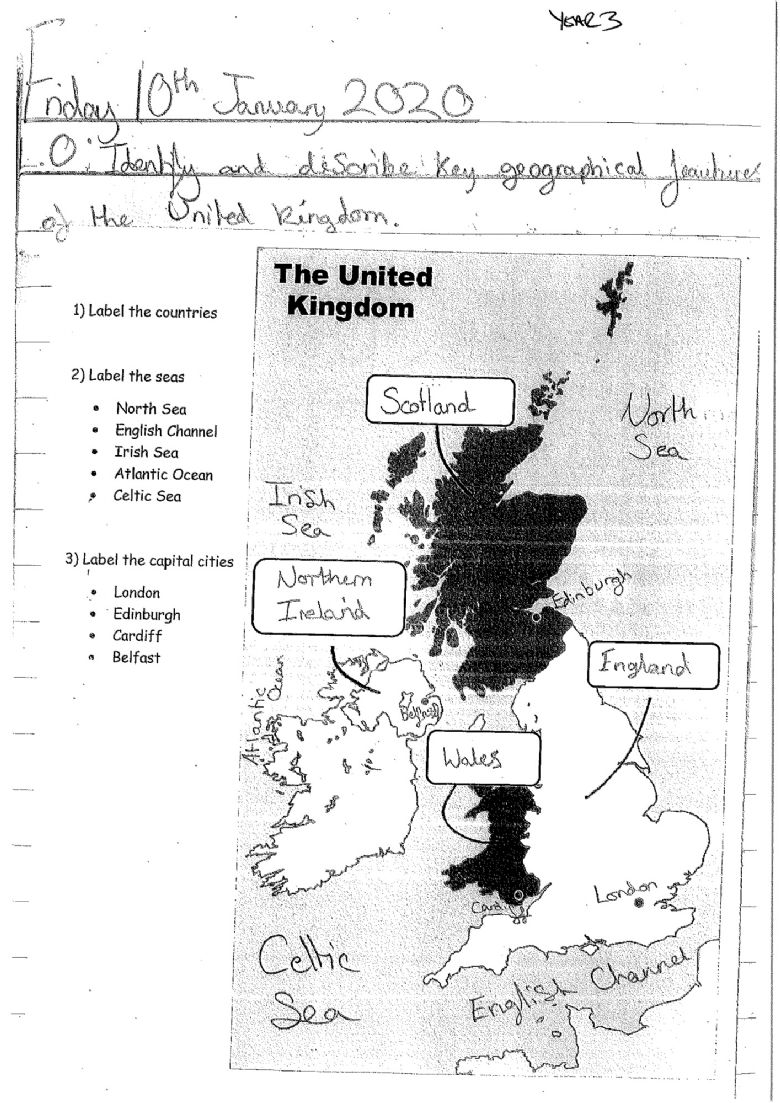 YEAR 3
Friday 10th January 2020
L.O: Identify and describe key geographical feautures
of the United Kingdom.
The United
Kingdom
1) Label the countries
2) Label the seas
• North Sea
• English Channel
• Irish Sea
• Atlantic Ocean
• Celtic Sea
3) Label the capital cities
• London
• Edinburgh
• Cardiff
• Belfast
Scotland
North
Sea
Irish
Sea
Northern
Ireland
Edinburgh
England
Atlantic
Ocean
Belfast
Wales
London
Cardiff
Celtic
Sea
English Channel